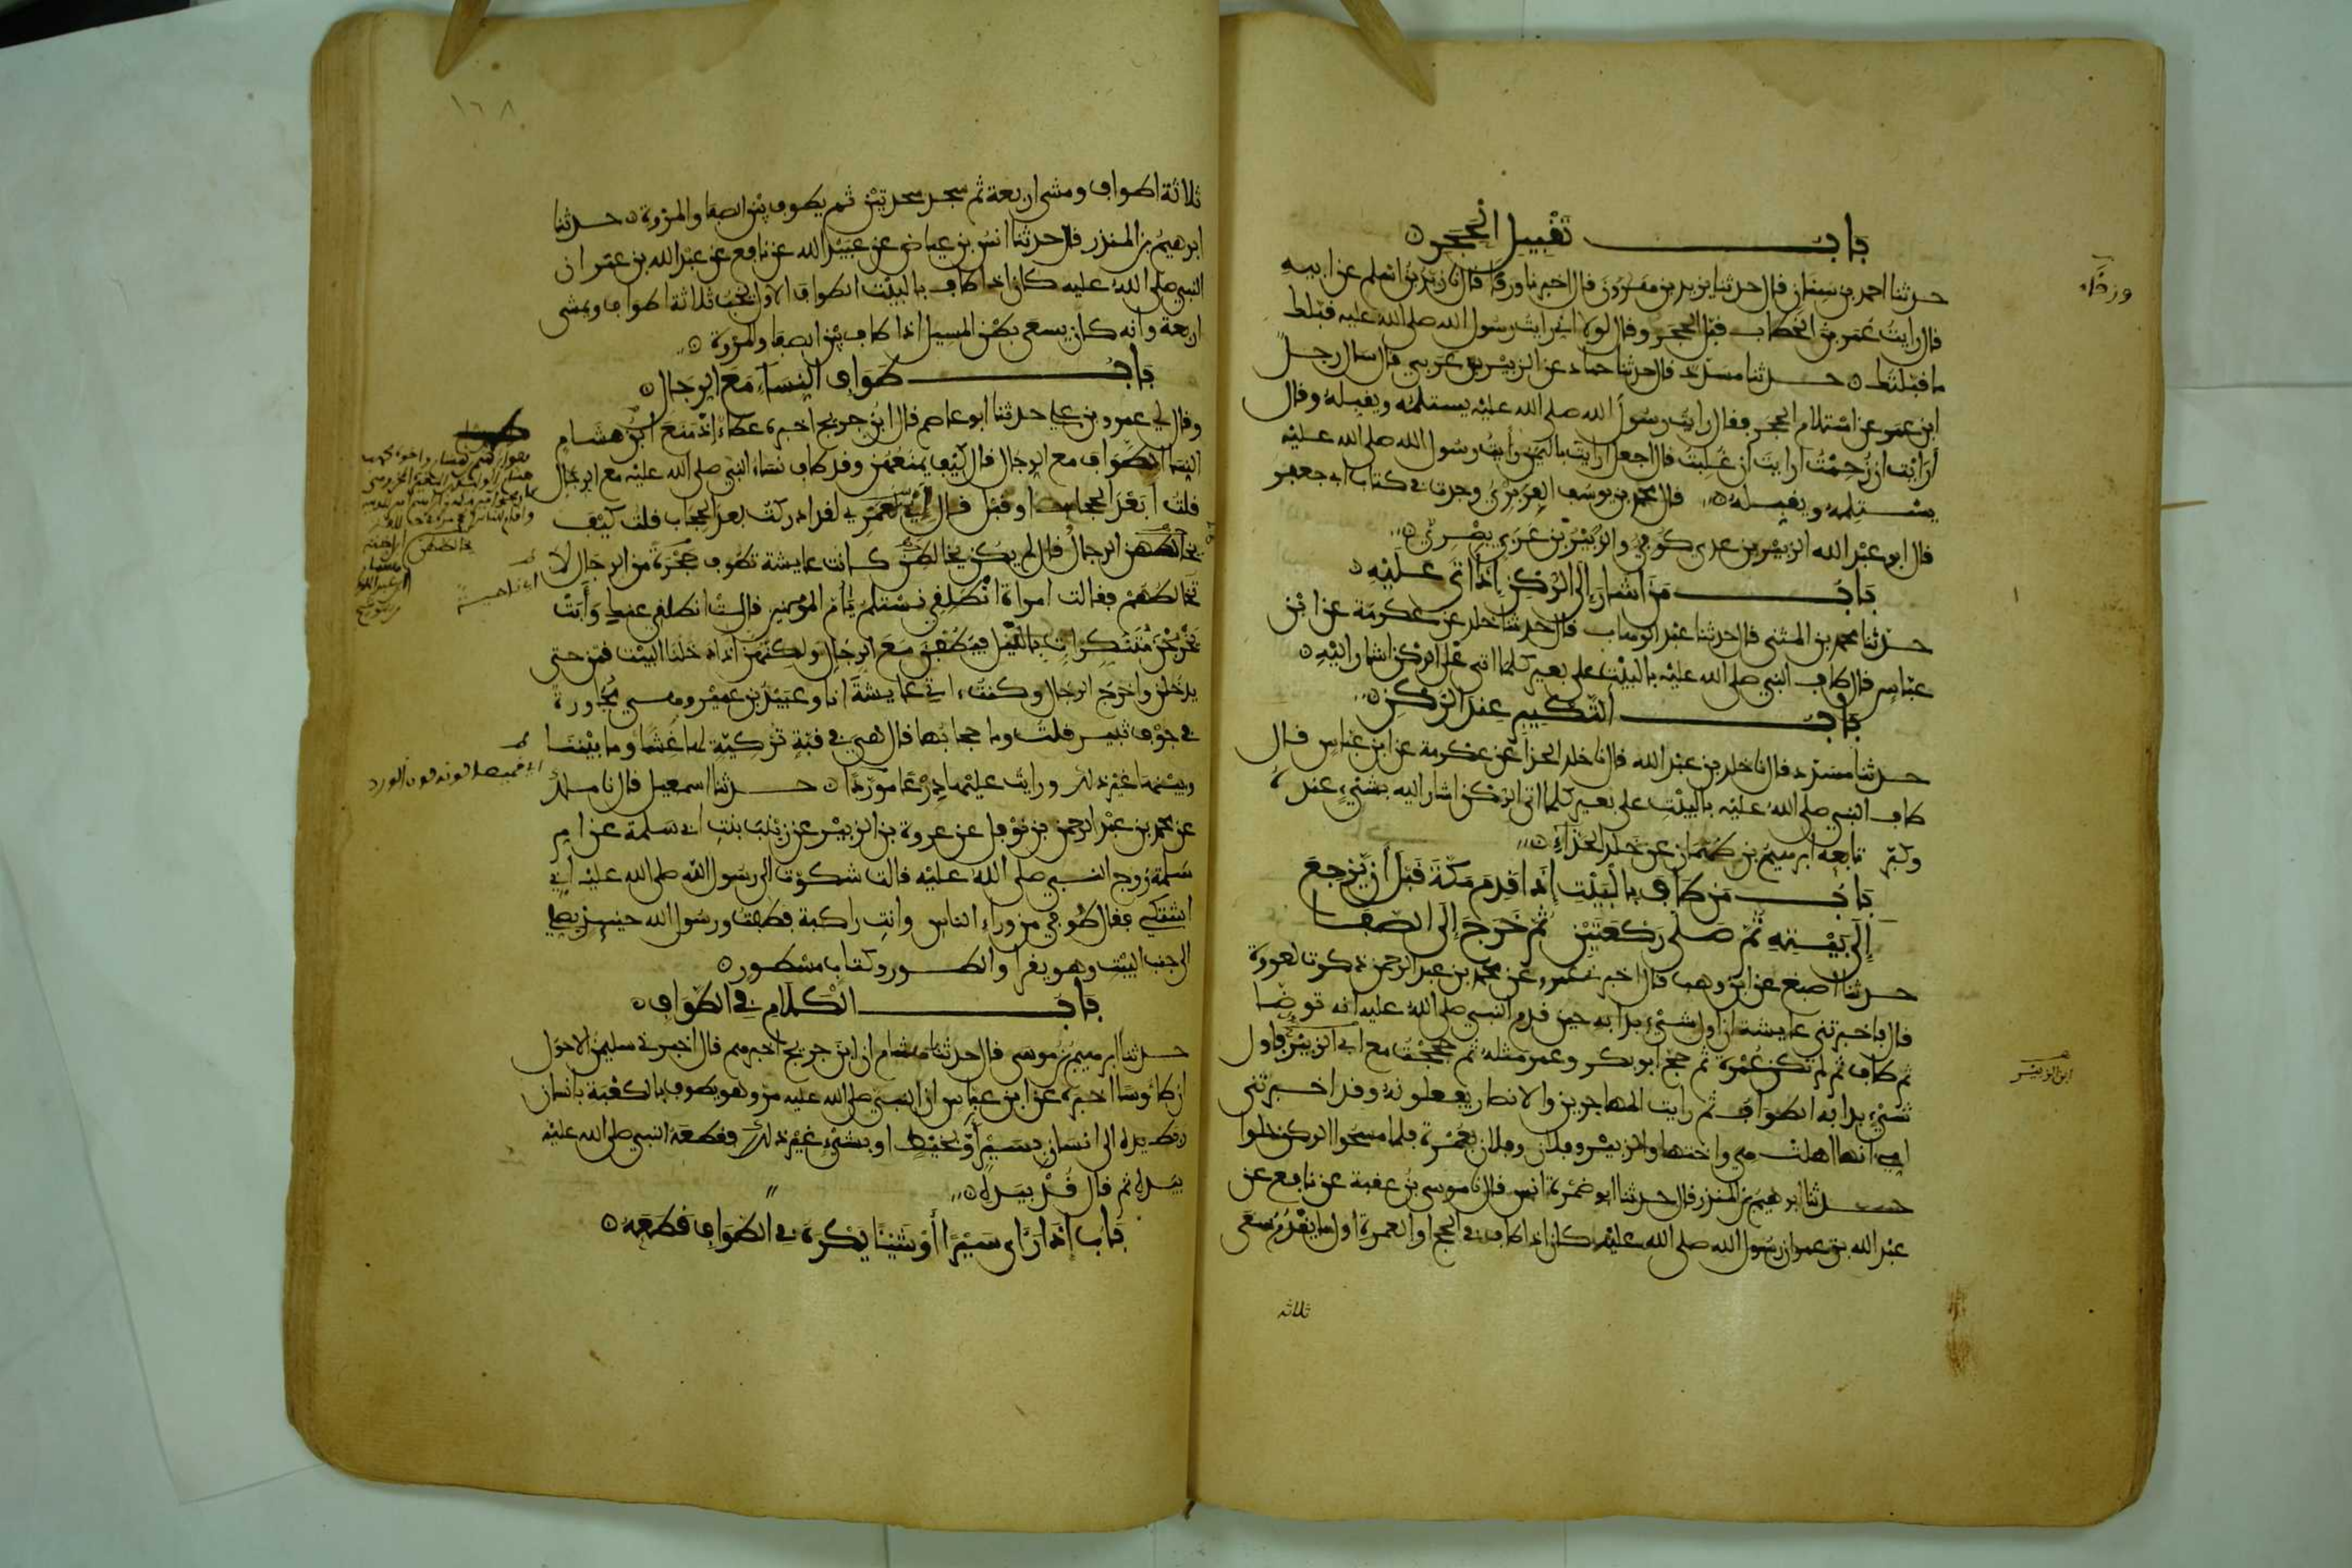 باب تقبيل الحجر
حدثنا احمد بن سنان قال حدثنا يزيد بن هرون قال اخبرنا ورقا قال نا زيد بن اسلم عن ابيه
قال رايت عمر بن الخطاب قبل الحجر وقال لولا اني رايت رسول الله صلى الله عليه قبلك
ما قبلتك حدثنا مسدد قال حدثنا حماد عن الزبير بن عربي قال سال رجل
ابن عمر عن استلام الحجر فقال رايت رسول الله صلى الله عليه يستلمه ويقبله وقال
أرايت ان زحمت ارايت ان غلبت قال اجعل ارايت باليمن رأيت رسول الله صلى الله عليه
يستلمه ويقبله قال محمد بن يوسف الفربري وجدت في كتاب ابي جعفر
قال ابو عبد الله الزبير بن عدي كوفي والزبير بن عربي بصري
باب من اشار إلى الركن إذا اتى عليه
حدثنا محمد بن المثنى قال حدثنا عبد الوهاب قال حدثنا خلد عن عكرمة عن ابن
عباس قال طاف النبي صلى الله عليه بالبيت على بعير كلما اتى على الركن اشار اليه
باب التكبير عند الركن
حدثنا مسدد قال نا خلد بن عبد الله قال نا خلد الحذا عن عكرمة عن ابن عباس قال
طاف النبي صلى الله عليه بالبيت على بعير كلما اتى الركن اشار اليه بشيء عنده
وكبر تابعه ابرهيم بن طهمان عن خلد الحذاء
باب من طاف بالبيت إذا قدم مكة قبل أن يرجع
إلى بيته ثم صلى ركعتين ثم خرج إلى الصفا
حدثنا اصبغ عن ابن وهب قال اخبرني عمرو عن محمد بن عبد الرحمن ذكرت لعروة
قال فاخبرتني عايشة ان اول شيء بدا به حين قدم النبي صلى الله عليه انه توضا
ثم طاف ثم لم تكن عمرة ثم حج ابو بكر وعمر مثله ثم حججت مع ابي الزبير فاول
شيء بدا به الطواف ثم رايت المهاجرين والانصار يفعلونه وقد اخبرتني
امي انها اهلت هي واختها والزبير وفلان وفلان بعمرة فلما مسحوا الركن حلوا
حدثنا ابرهيم بن المنذر قال حدثنا ابو ضمرة انس قال نا موسى بن عقبة عن نافع عن
عبد الله بن عمر ان رسول الله صلى الله عليه كان اذا طاف في الحج او العمرة اول ما يقدم سعى
ثلاثة
ورقاء
ابن الزبير
١٦٨
ثلاثة اطواف ومشى اربعة ثم سجد سجدتين ثم يطوف بين الصفا والمروة حدثنا
ابرهيم بن المنذر قال حدثنا انس بن عياض عن عبيد الله عن نافع عن عبد الله بن عمر ان
النبي صلى الله عليه كان اذا طاف بالبيت الطواف الاول يخب ثلاثة اطواف ويمشي
اربعة وانه كان يسعى بطن المسيل اذا طاف بين الصفا والمروة
باب طواف النساء مع الرجال
وقال لي عمرو بن علي حدثنا ابو عاصم قال ابن جريج اخبرني عطاء اذ منع ابن هشام
النساء الطواف مع الرجال قال كيف يمنعهن وقد طاف نساء النبي صلى الله عليه مع الرجال
قلت أبعد الحجاب او قبل قال إي لعمري لقد ادركت بعد الحجاب قلت كيف
يخالطهن الرجال قال لم يكن يخالطن كانت عايشة تطوف حجرة من الرجال لا
تخالطهم فقالت امراة انطلقي نستلم يا أم المومنين قالت انطلقي عنك وأبت
يخرجن متنكرات بالليل فيطفن مع الرجال ولكنهن اذا دخلن البيت قمن حتى
يدخلن واخرج الرجال وكنت اتي عايشة انا وعبيد بن عمير وهي مجاورة
في جوف ثبير قلت وما حجابها قال هي في قبة تركية لها غشا وما بيننا
وبينها غير ذلك ورايت عليها درعا موردا حدثنا اسمعيل قال نا ملك
عن محمد بن عبد الرحمن بن نوفل عن عروة بن الزبير عن زينب بنت ابي سلمة عن ام
سلمة زوج النبي صلى الله عليه قالت شكوت الى رسول الله صلى الله عليه اني
اشتكي فقال طوفي من وراء الناس وانت راكبة فطفت ورسول الله حينئذ يصلي
الى جنب البيت وهو يقرا والطور وكتاب مسطور
باب الكلام في الطواف
حدثنا ابرهيم بن موسى قال حدثنا هشام ان ابن جريج اخبرهم قال اخبرني سليمن الاحول
ان طاوسا اخبره عن ابن عباس ان النبي صلى الله عليه مر وهو يطوف بالكعبة بانسان
ربط يده الى انسان بسير أو بخيط او بشيء غير ذلك فقطعه النبي صلى الله عليه
بيده ثم قال قد بيده
باب إذا رأى سيرا أو شيئا يكره في الطواف قطعه
اي ناحية
اي قميصا لونه لون الورد